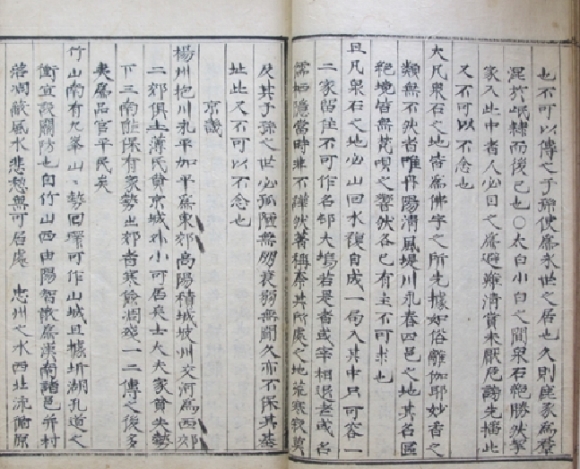 也不可以傳之子孫使爲永世之居也久則
泥於岷隷而後已也○太白小白之間泉石絶勝然挐
家入此中者人必曰爲避難清賞未厭危謗先播此
又不可以不念也
大凡泉石之地皆爲佛宇之所先據如俗離伽耶妙香之
類無不然者唯丹陽清風堤川永春四邑之地其名區
絶境皆無梵唄之響然各已有主不可求也
且凡泉石之地必山回水複自成一局入其中只可容一
二家留住不可作名邨大塢若是者或宰相退老或名
儒栖隱當時非不然著稱其所處之地荒寒寂寞
及其子孫之世必孤陋無朋衰弱無聞久亦不保其基
址此又不可以不念也
京畿
楊州抱川永平加平爲東郊高陽積城坡州交河爲西郊
二郊俱土薄民貧京城外小可居矣士大夫家貧失勢
下三南能保有家勢出郊者寒儉凋殘一二傳之後多
夷爲品官平民矣
竹山南有九峯山山勢回環可作山城且據圻湖孔道之
衝宜設關防也自竹山西由陽智爲漢南諸邑并村
落凋敝風水悲愁無可居處 忠州之水西北流原